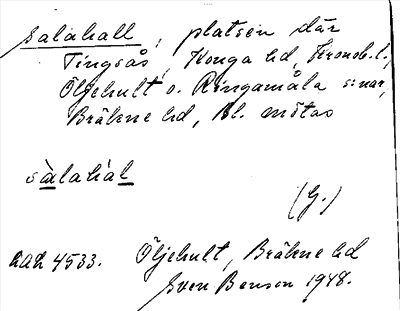 salahall, platsen där
Tingsås, Konga hd, Kronob. l.,
Öljehult o. Ringamåla s:nar,
Bräkne hd, Bl. mötas
sàlahál
(G.)
LAL 4533. Öljehult, Bräkne hd
Sven Benson 1948.